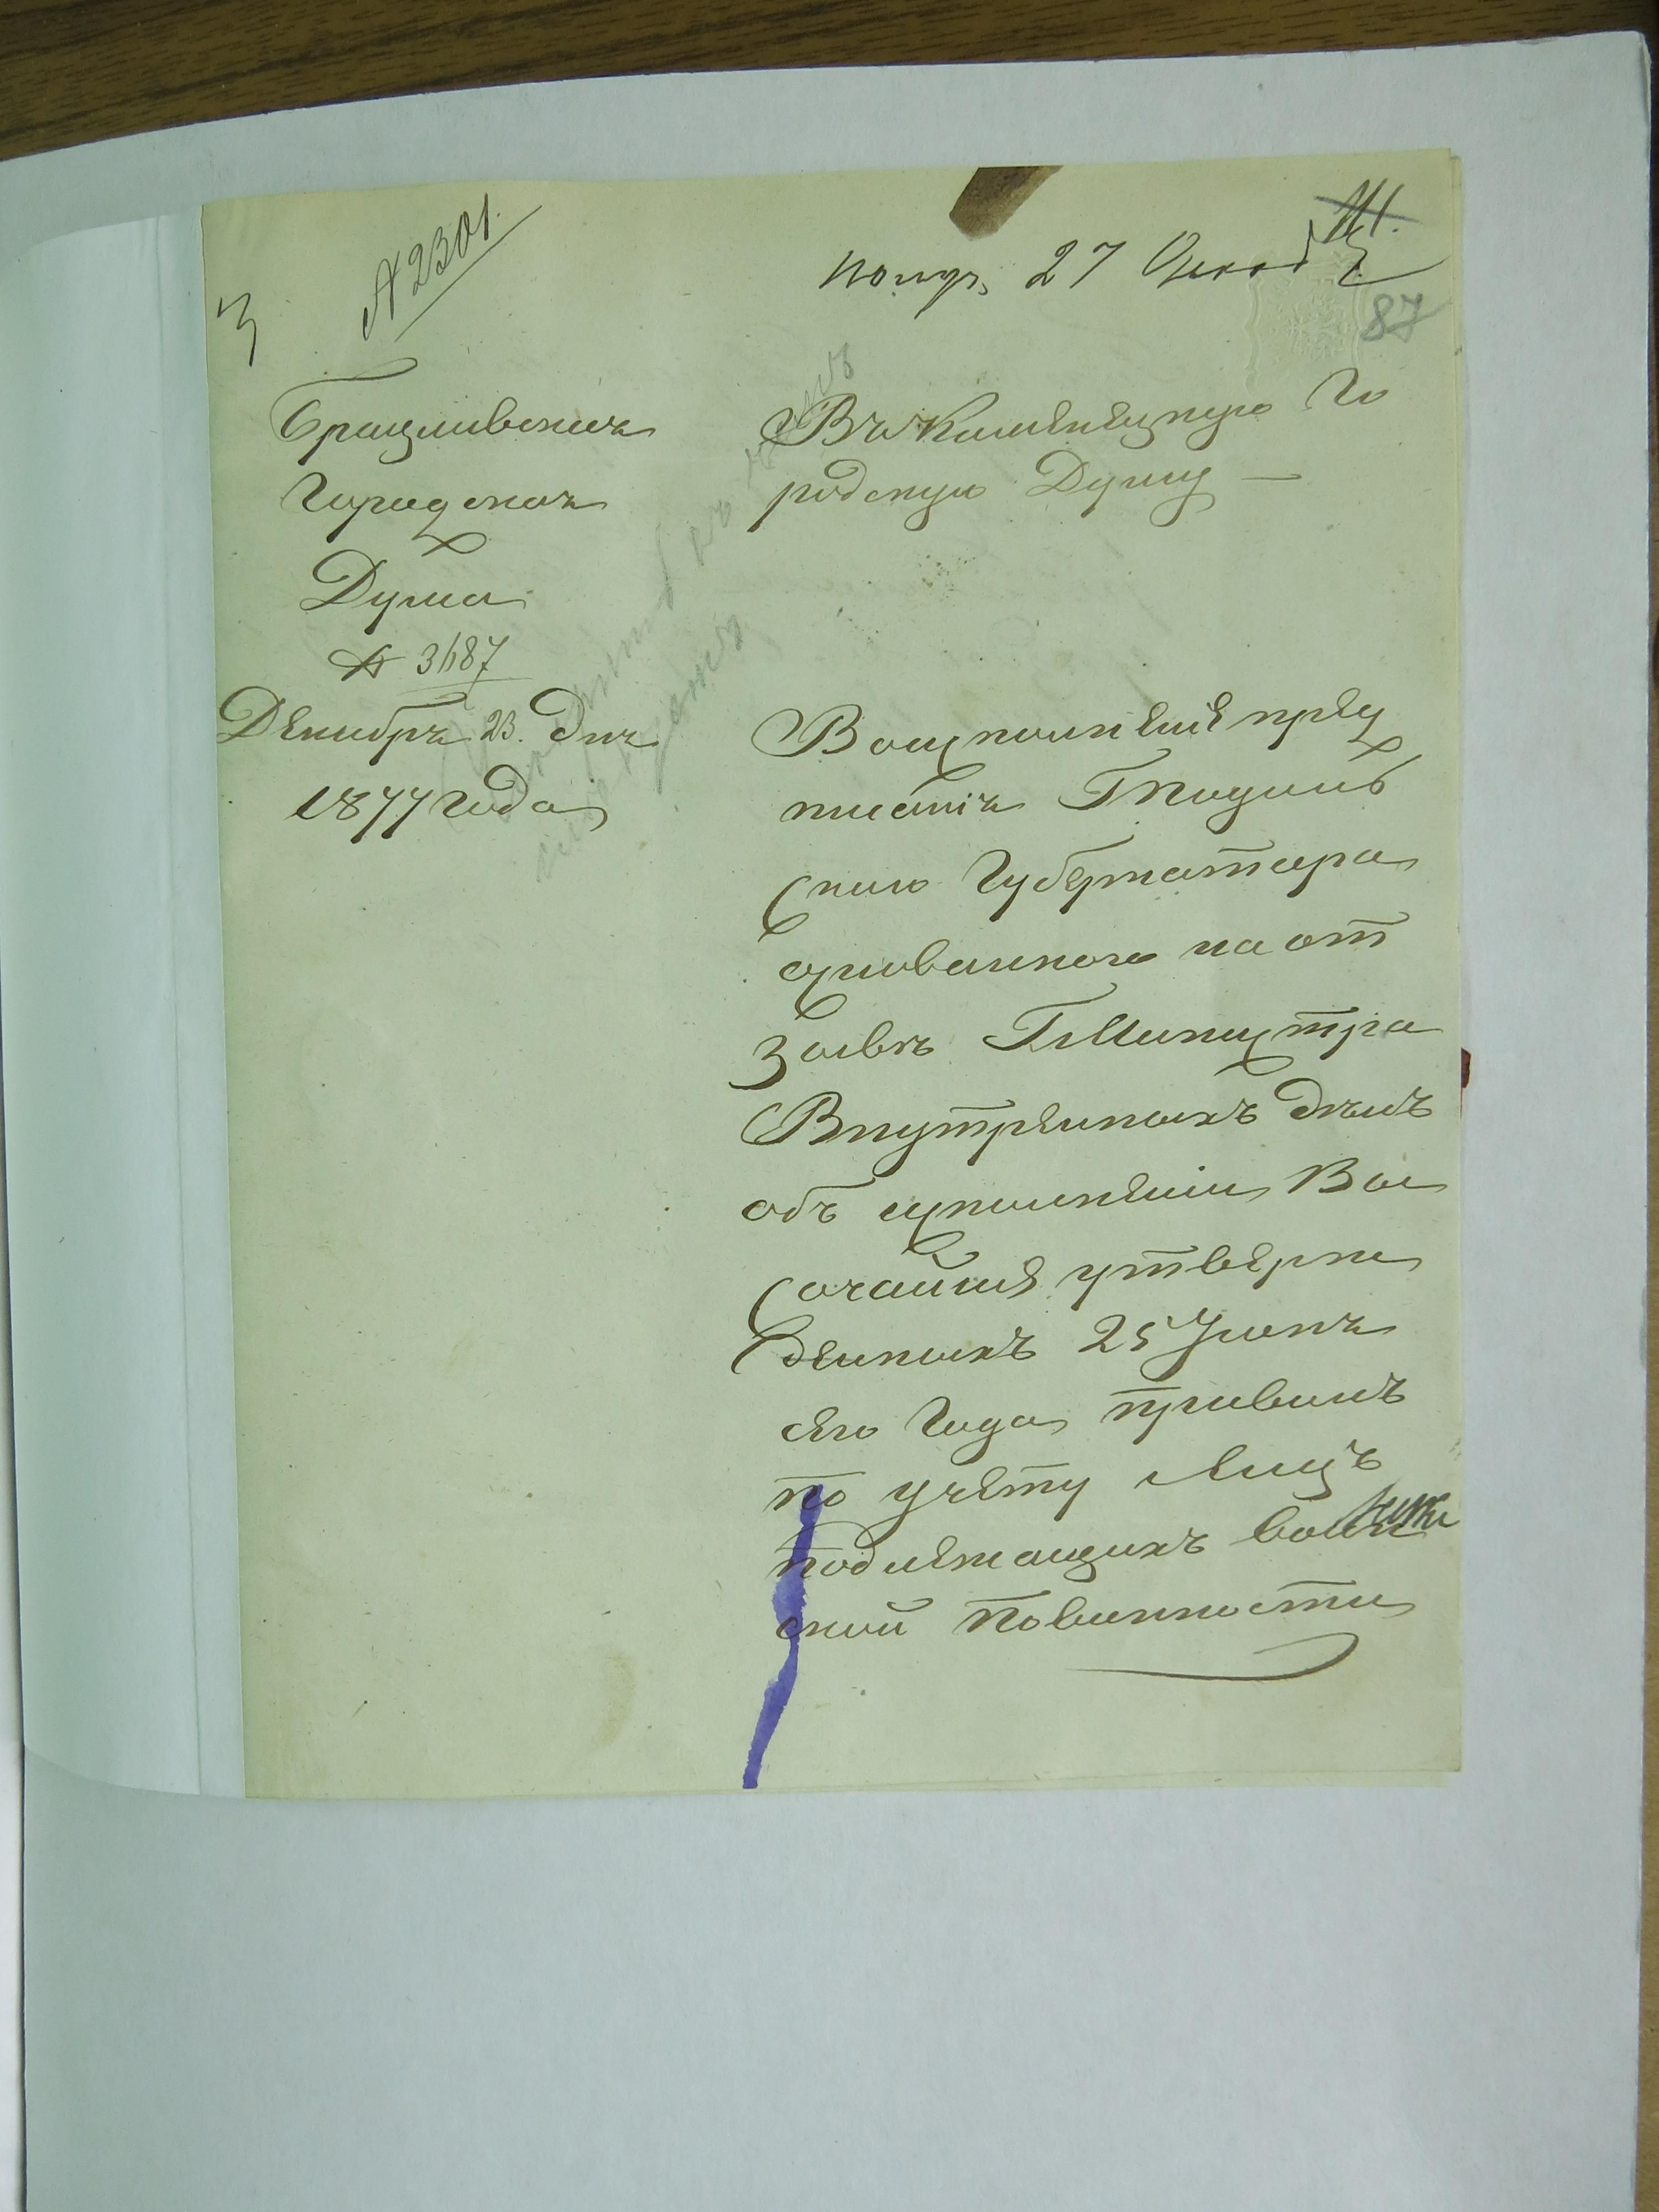 № 2301.
27
87
3
Брацлавская
Городская
Дума
№ 3687
Декабря 23. дня
1877 Года
Въ Каменецкую Го
родскую Думу —
Во исполненіе пред
писанія Г Подоль
скаго Губернатора
основаннаго на от
зывѣ Г. Министра
Внутренныхъ Дѣлъ
объ исполненіи Вы
сочайше утверж
денныхъ 25 Іюня
сего Года правилъ
по учету лицъ
подлежащихъ воин
ской повинности